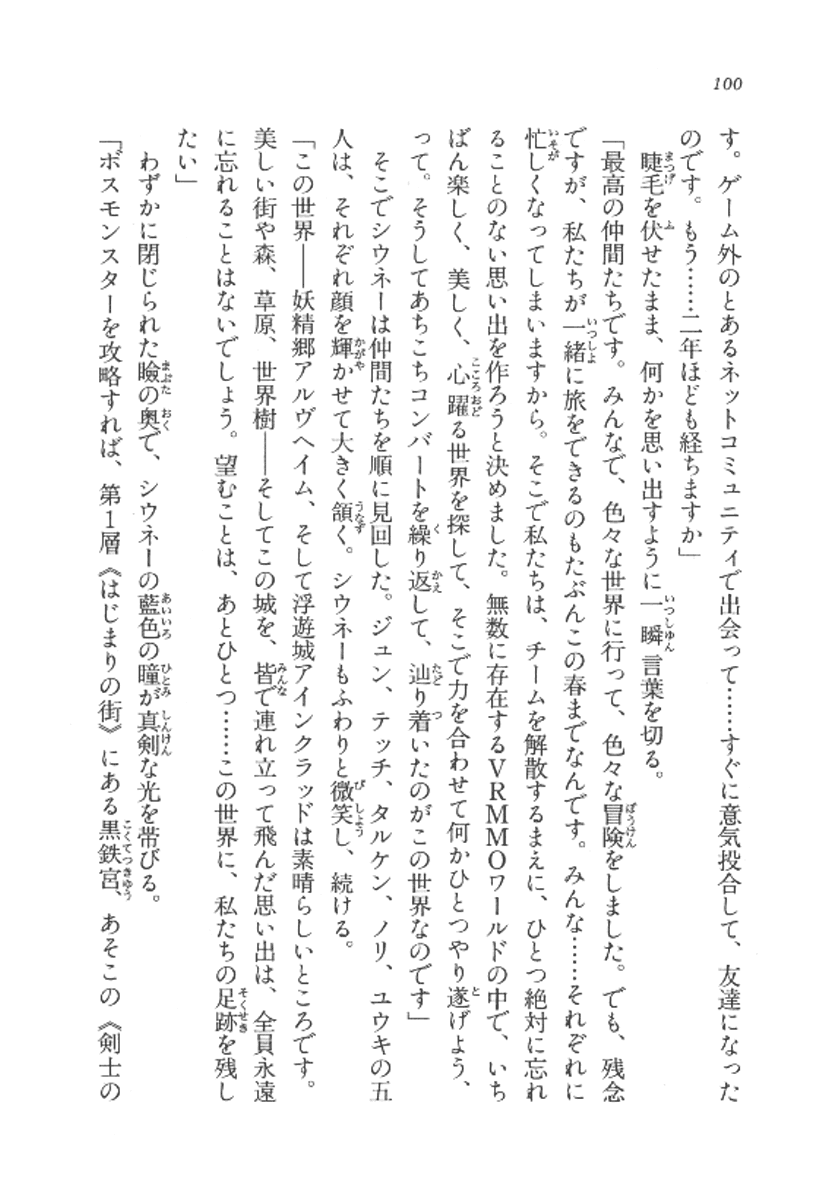 100
す。ゲーム外のとあるネットコミュニティで出会って……すぐに意気投合して、友達になった
のです。もう……二年ほども経ちますか」
睫毛を伏せたまま、何かを思い出すように一瞬言葉を切る。
「最高の仲間たちです。みんなで、色々な世界に行って、色々な冒険をしました。でも、残念
ですが、私たちが一緒に旅をできるのもたぶんこの春までなんです。みんな……それぞれに
忙しくなってしまいますから。そこで私たちは、チームを解散するまえに、ひとつ絶対に忘れ
ることのない思い出を作ろうと決めました。無数に存在するVRMMOワールドの中で、いち
ばん楽しく、美しく、心躍る世界を探して、そこで力を合わせて何かひとつやり遂げよう、
って。そうしてあちこちコンバートを繰り返して、辿り着いたのがこの世界なのです」
そこでシウネーは仲間たちを順に見回した。ジュン、テッチ、タルケン、ノリ、ユウキの五
人は、それぞれ顔を輝かせて大きく頷く。シウネーもふわりと微笑し、続ける。
「この世界――妖精郷アルヴヘイム、そして浮遊城アインクラッドは素晴らしいところです。
美しい街や森、草原、世界樹――そしてこの城を、皆で連れ立って飛んだ思い出は、全員永遠
に忘れることはないでしょう。望むことは、あとひとつ……この世界に、私たちの足跡を残し
たい」
わずかに閉じられた瞼の奥で、シウネーの藍色の瞳が真剣な光を帯びる。
「ボスモンスターを攻略すれば、第1層《はじまりの街》にある黒鉄宮、あそこの《剣士の